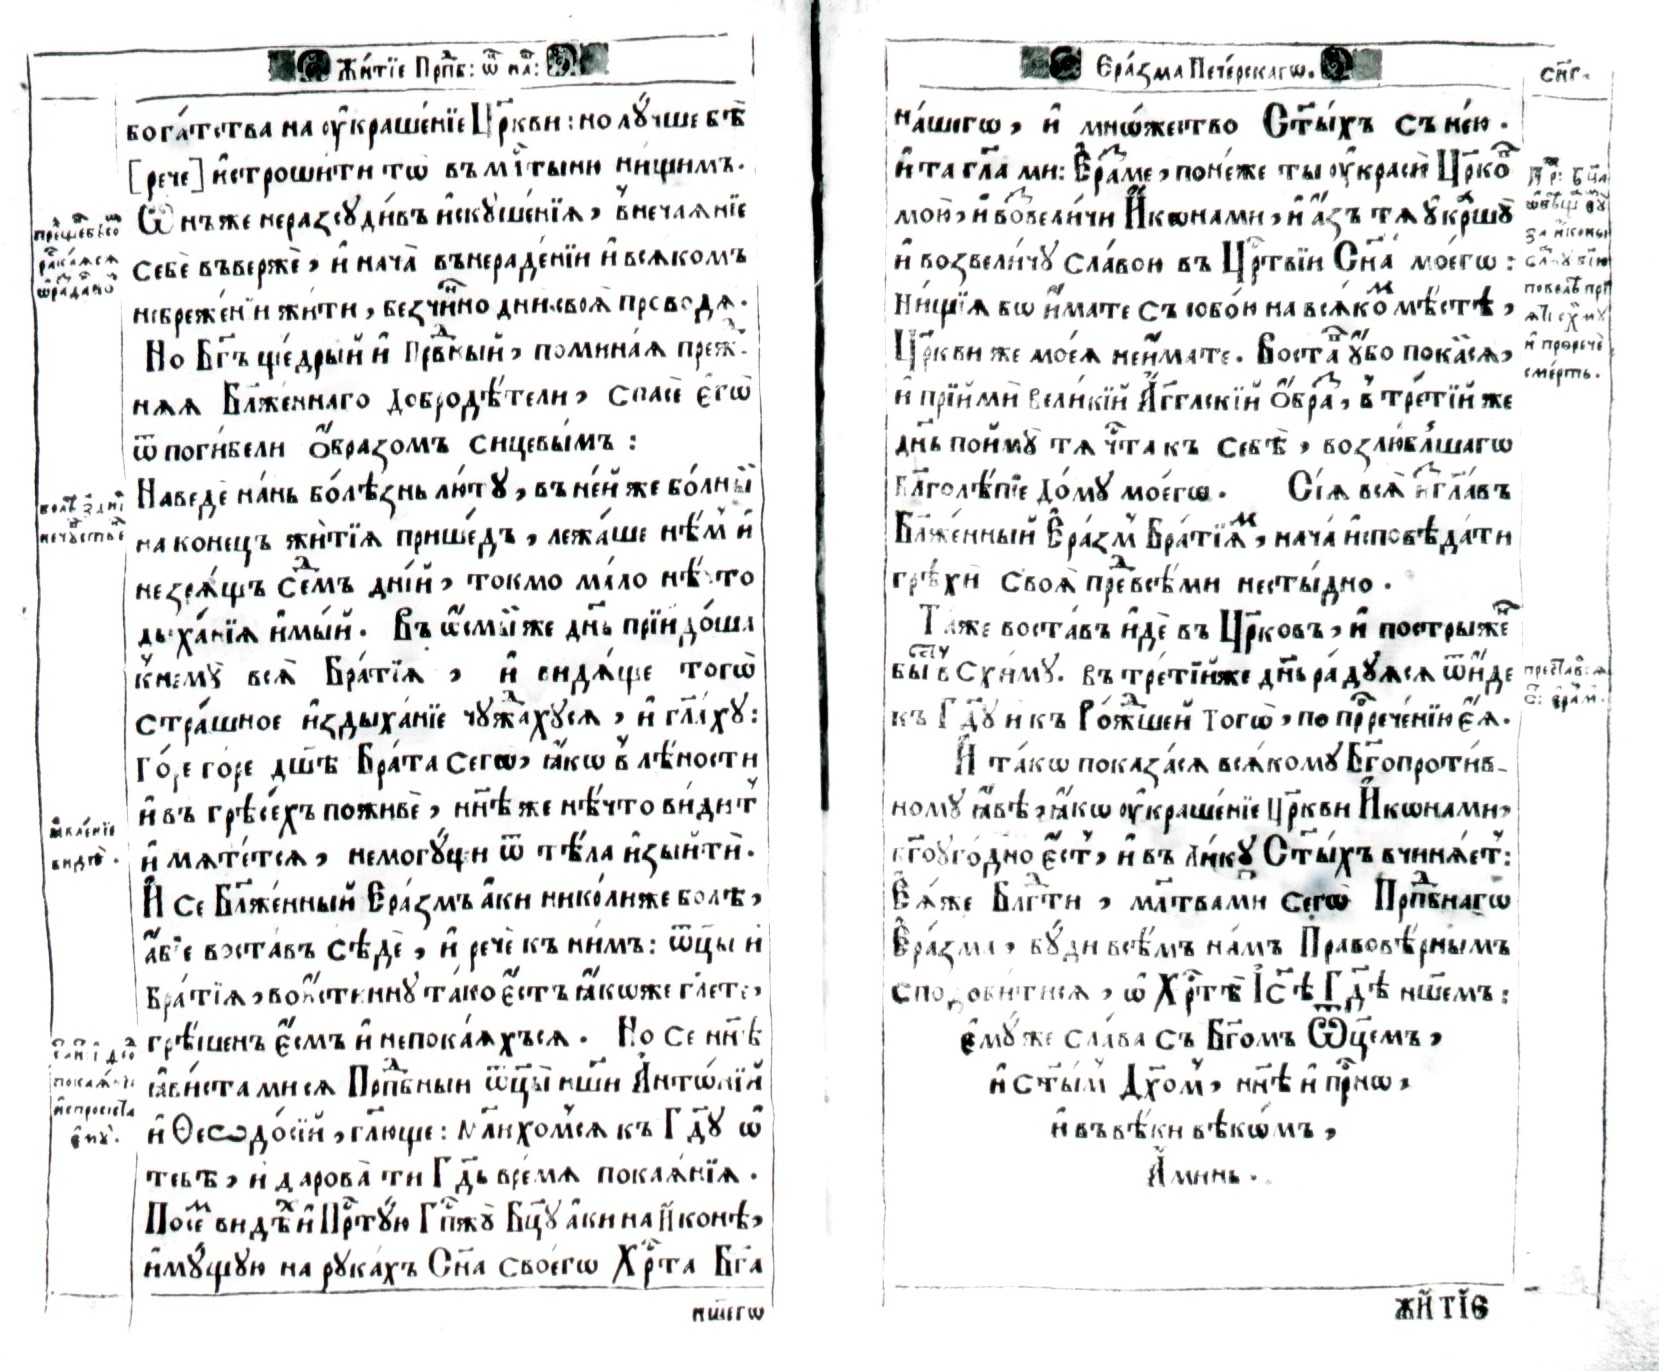 Жи́тїе Прпⷣб: ѿ на́:
бога́тства на ѹ҆краше́нїе Цр҃кви: но лꙋ́чше бѣ̀
[рече] и҆строши́ти то̀ въ мⷭ҇тыню ни́щимъ.
Ѻ҆нъ же неразсꙋди́въ и҆скꙋше́нїѧ, в̾неча́ѧнїе
себѐ въве́рже, и҆ нача̀ въ нераде́нїи и҆ всѧкомъ
небреже́нїи жи́ти, безчи́нно дни своѧ̀ прово́дѧ.
Но Бг҃ъ ще́дрый и҆ Прⷣвный, помина́ѧ пре́ж-
нѧѧ Бл҃же́ннаго добродѣ́тели, спасѐ є҆гѡ̀
ѿ поги́бели ѻ҆́бразомъ сицевы́мъ:
Наведѐ на́нь болѣ́знь лю́тꙋ, въ не́й же бо́лный
на коне́цъ житїѧ̀ прише́дъ, лежа́ше нѣ́мъ и҆
незрѧ́щъ се́дмъ дні́й, токмо ма́ло нѣ́что
дыха́нїѧ и҆мы́й. Въ ѡ҆смы́й же дн҃ь прїидо́ша
к̾немꙋ̀ всѧ̀ Бра́тїѧ, и҆ ви́дѧще тогѡ̀
стра́шное и҆здыха́нїе чꙋжⷣа́хꙋсѧ, и҆ гл҃а́хꙋ:
Го́ре го́ре дш҃ѣ̀ Бра́та сегѡ̀, ꙗ҆́кѡ в̾ лѣ́ности
и҆ въ грѣсѣ́хъ поживѐ, нн҃ѣ же нѣ́что ви́дит̾
и҆ мѧте́тсѧ, немогꙋ́щи ѿ тѣ́ла и҆зы́йти.
И҆ се Бл҃же́нный Е҆ра́змъ а҆́ки николи́же болѣ̀,
а҆́бїе воста́въ сѣ́дѐ, и҆ речѐ къ ни́мъ: ѿц҃ы и҆
Бра́тїѧ, вои́стиннꙋ та́ко є҆́стъ ꙗ҆́коже гл҃ете,
грѣ́шенъ є҆́смъ и҆ непока́ѧхъсѧ. Но се нн҃ѣ
ꙗ҆ви́ста ми сѧ Прпⷣбныи ѿц҃ы̀ нш҃и А҆нтѡ́нїй
и҆ Ѳеѡдо́сїй, гл҃юще: мⷧ҇ихо́мсѧ къ Гдⷭ҇ꙋ ѡ҆
тебѣ̀, и҆ дарова̀ ти Гдⷭ҇ь вре́мѧ покаѧ́нїѧ.
Посе́мъ ви́дѣхъ и҆ Прⷭ҇тꙋ́ю Гпⷭ҇жꙋ̀ Бц҃ꙋ а҆́ки на и҆ко́нѣ,
и҆мꙋ́щꙋю на рꙋка́хъ Сн҃а своегѡ̀ Хрⷭ҇та Бг҃а
нш҃егѡ
боле́ з҃ дні́й
ꙗ҆вле́нїе
видѣ̀.
Е҆ра́зма Пече́рскагѡ.
на́шегѡ, и҆ мно́жество Ст҃ы́хъ съ не́ю.
и҆ та гл҃а ми: Е҆ра́зме, поне́же ты ѹ҆красѝ Цр҃ковъ
мою̀, и҆ возвели́чи И҆́конами, и҆ а҆́зъ тѧ ѹ҆крашꙋ̀
и҆ возвели́чꙋ сла́вою въ Црⷭ҇твїи Сн҃а моегѡ̀:
Ни́щїѧ бо и҆́мате съ собо́ю на всѧ́комъ мѣ́стѣ,
Цр҃кви же моеѧ̀ не и҆́мате. Воста́въ ѹ҆́бо пока́йсѧ,
и҆ прїимѝ вели́кїй А҆́гг҃лскїй ѻ҆́бразъ, в̾ тре́тїй же
дн҃ь поймꙋ̀ тѧ чⷭ҇та къ себѣ̀, возлю́блшагѡ
бл҃голѣ́пїе до́мꙋ моегѡ̀. Сїѧ̀ всѧ̀ и҆зглагола́въ
Бл҃же́нный Е҆ра́змъ Бра́тїѧмъ, нача̀ и҆сповѣ́дати
грѣхѝ своѧ̀ предъ всѣ́ми нестыⷣно.
Та́же воста́въ и҆́де въ Цр҃ковъ, и҆ постри́женъ
бы́сть в̾ Схи́мꙋ. въ тре́тїй же дн҃ь ра́дꙋѧсѧ ѿи́де
къ Гдⷭ҇ꙋ и҆ къ Ро́жⷣшей того̀, по прⷪ҇рече́нїю є҆ѧ̀.
И҆ та́кѡ показа́сѧ всѧ́комꙋ Бг҃опроти́в-
номꙋ ꙗ҆́вѣ, ꙗ҆́кѡ ѹ҆краше́нїе Цр҃кви И҆́конами,
бг҃оꙋго́дно є҆́ст̾, и҆ въ ли́кꙋ Ст҃ы́хъ вчинѧ́ет̾:
Е҆ѧ́же Бл҃гⷣти, мл҃твами сегѡ̀ Прпⷣбнагѡ
Е҆ра́зма, бꙋ́ди всѣ́мъ на́мъ Правовѣ́рнымъ
сподоби́тисѧ, ѡ҆ Хрⷭ҇тѣ̀ І҆с҃ѣ Гдⷭ҇ѣ нш҃емъ:
є҆мꙋ́же сла́ва съ Бг҃омъ Ѿц҃емъ,
и҆ ст҃ы́мъ Дх҃омъ, нн҃ѣ и҆ прⷭ҇нѡ,
и҆ въ вѣ́ки вѣкѡ́мъ,
А҆ми́нь.
сн҃г.
за и҆коны
и҆ проречѐ
сме́рть.
ЖИТІЕ